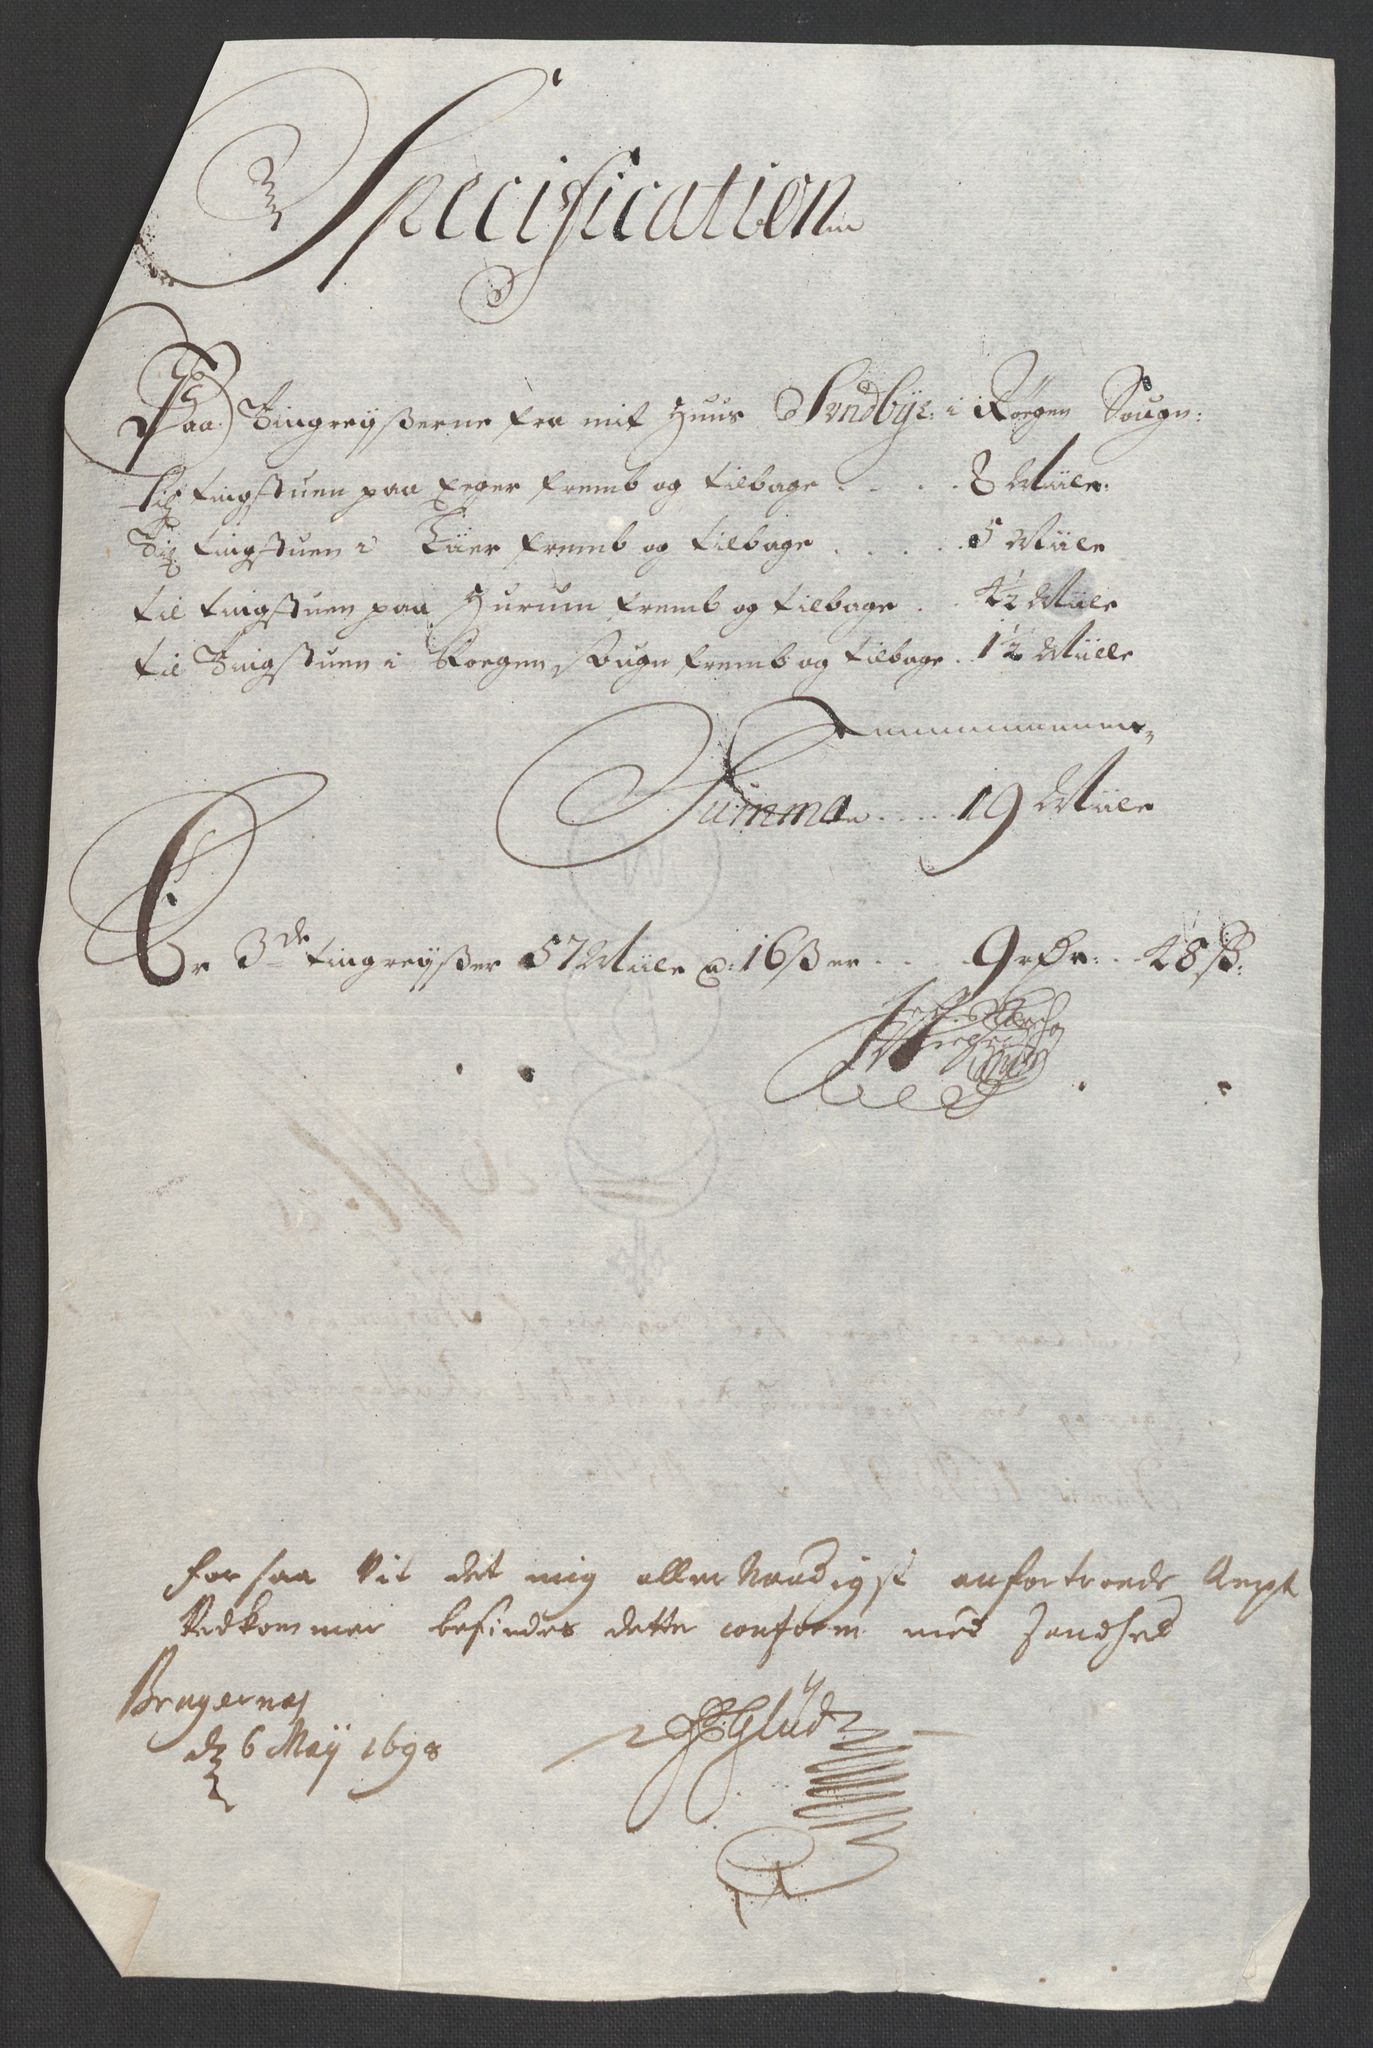 Specification
Paa Tingreyßerne fra mit Huus Sundbÿe i Röegen Sougn:
Til tingstuen paa Eeger fremb og tilbage . . . . 8 Miile:
Til tingstuen i Lier fremb og tilbage . . . . . 5 Miile
til tingstuen paa Hurum fremb og tilbage . . 4½ Miile
til Tingstuen i Roegen Sougn fremb og tilbage . 1½ Miile
Summa . . . . 19 Miile
Er 3de tingreyßer 57 Miile a: 16 ß er . . . 9 rdr: . . 48 ß:
for saa vit det mig aller Naadigst anfortroede Ampt
Vedkommer befindes dette conform med Sandhed
Bragernes
d 6 Maij 1698
Glud